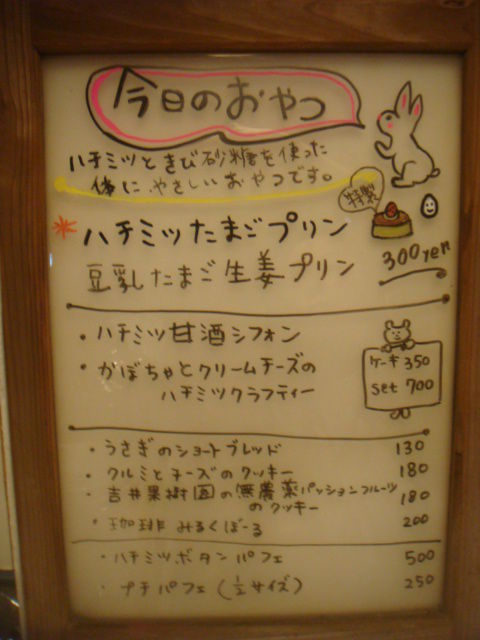 今日のおやつ
ハチミツときび砂糖を使った
体に やさしいおやつです。
特製
ハチミツたまごプリン
豆乳たまご生姜プリン
300yen
・ハチミツ甘酒シフォン
・かぼちゃとクリームチーズの
ハチミツクラフティー
ケーキ 350
set 700
・うさぎのショートブレッド 130
・クルミとチーズのクッキー 180
・吉井果樹園の無農薬パッションフルーツ
のクッキー 180
・珈琲みるくぼーる 200
・ハチミツボタンパフェ 500
・プチパフェ(1/2サイズ) 250